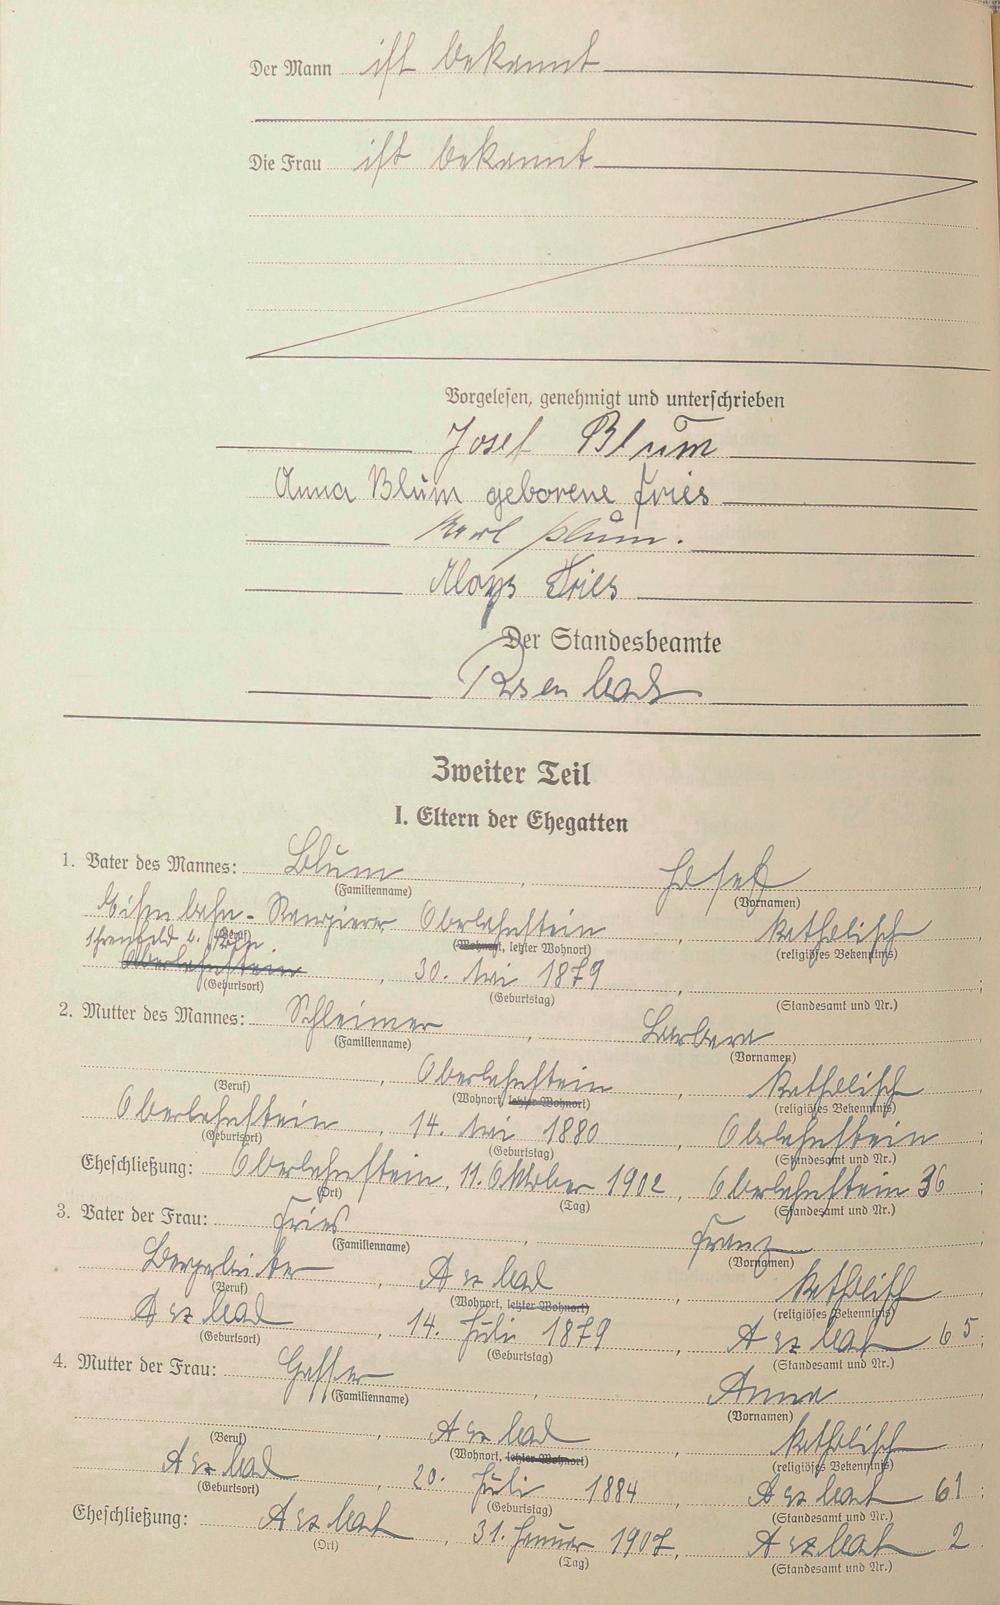 Der Mann ist bekannt
Die Frau ist bekannt
Vorgelesen, genehmigt und unterschrieben
Josef Blum
Anna Blum geborene Fries
Karl Blum.
Aloys Fries
Der Standesbeamte
Zweiter Teil
I. Eltern der Ehegatten
1. Vater des Mannes: Blum, Josef
(Familienname) (Vornamen)
Eisenbahn-Rangierer Oberlahnstein, katholisch
(Beruf) (Wohnort, letzter Wohnort) (religiöses Bekenntnis)
Oberlahnstein, 30. Mai 1879, ;
(Geburtsort) (Geburtstag) (Standesamt und Nr.)
2. Mutter des Mannes: Schleimer, Barbara
(Familienname) (Vornamen)
, Oberlahnstein, katholisch
(Beruf) (Wohnort, letzter Wohnort) (religiöses Bekenntnis)
Oberlahnstein, 14. Mai 1880, Oberlahnstein ;
(Geburtsort) (Geburtstag) (Standesamt und Nr.)
Eheschließung: Oberlahnstein, 11. Oktober 1902, Oberlahnstein 36 ;
(Ort) (Tag) (Standesamt und Nr.)
3. Vater der Frau: Fries, Franz
(Familienname) (Vornamen)
Arzbach, katholisch
(Beruf) (Wohnort, letzter Wohnort) (religiöses Bekenntnis)
Arzbach, 14. Juli 1879, Arzbach 65 ;
(Geburtsort) (Geburtstag) (Standesamt und Nr.)
4. Mutter der Frau: Gasser, Anna
(Familienname) (Vornamen)
, Arzbach, katholisch
(Beruf) (Wohnort, letzter Wohnort) (religiöses Bekenntnis)
Arzbach, 20. Juli 1884, Arzbach 61 ;
(Geburtsort) (Geburtstag) (Standesamt und Nr.)
Eheschließung: Arzbach, 31. Januar 1907, Arzbach 2
(Ort) (Tag) (Standesamt und Nr.)